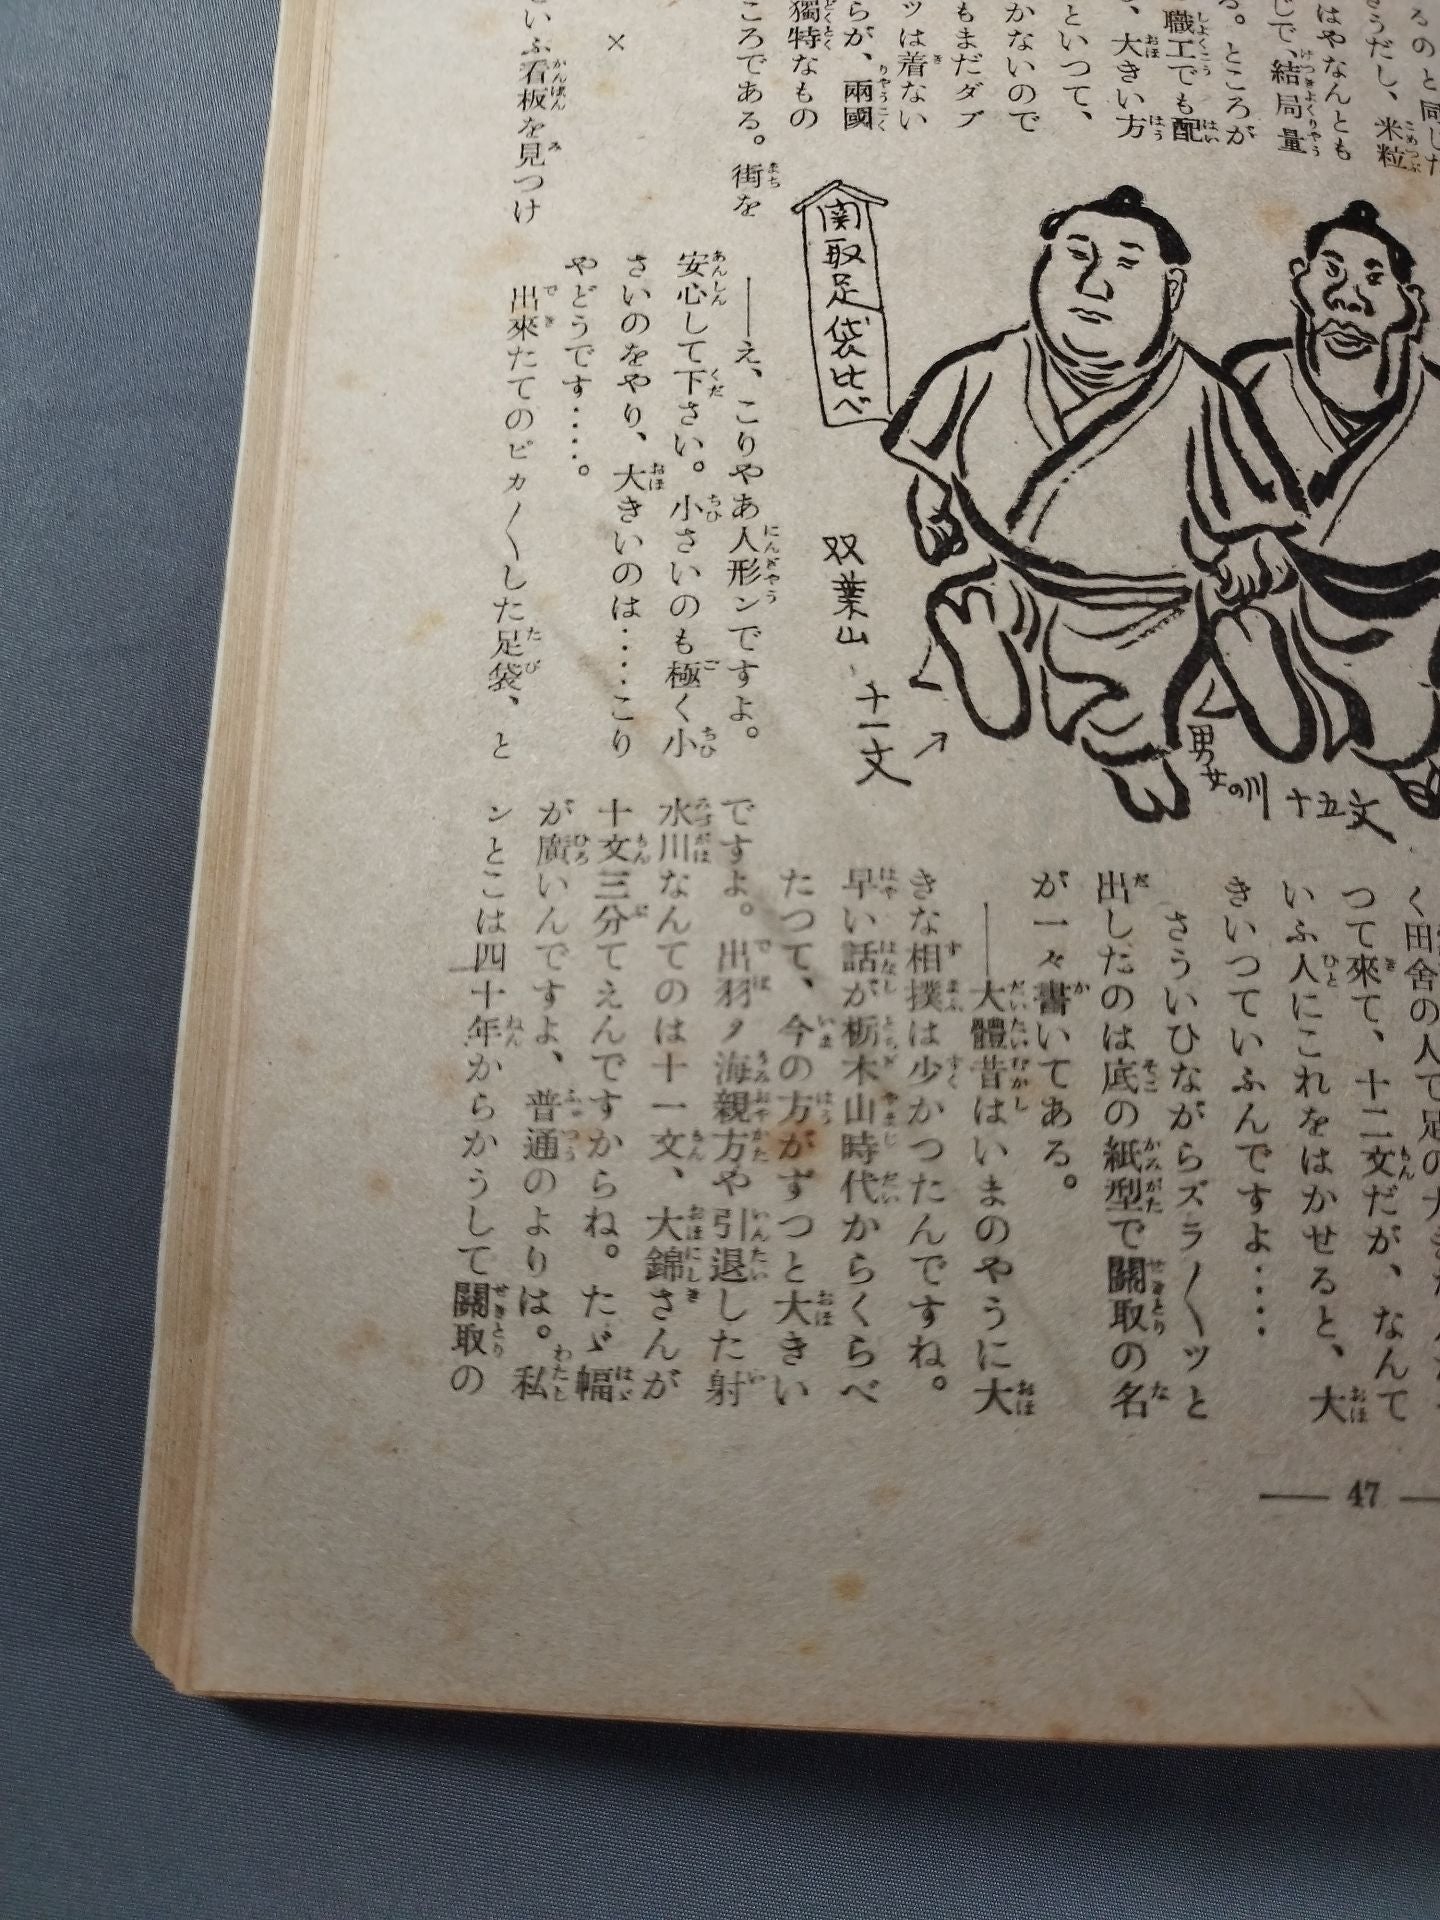 るのと同じた
うだし、米粒
はやなんとも
じで、結局量
る。ところが
職工でも配
、大きい方
といつて、
かないので
もまだダブ
ツは着ない
らが、兩國
獨特なもの
ころである。街を
×
いふ看板を見つけ
関取足袋比べ
双葉山 十一文
男女の川 十五文
――え、こりやあ人形ンですよ。
安心して下さい。小さいのも極く小
さいのをやり、大きいのは‥‥こり
やどうです‥‥。
出來たてのピカ〳〵した足袋、と
く田舍の人で足の大き
つて來て、十二文だが、なんて
いふ人にこれをはかせると、大
きいつていふんですよ‥‥
さういひながらズラ〳〵ツと
出したのは底の紙型で關取の名
が一々書いてある。
――大體昔はいまのやうに大
きな相撲は少かつたんですね。
早い話が栃木山時代からくらべ
たつて、今の方がずつと大きい
ですよ。出羽ノ海親方や引退した射
水川なんてのは十一文、大錦さんが
十文三分てえんですからね。たゞ幅
が廣いんですよ、普通のよりは。私
ンとこは四十年からかうして關取の
― 47 ―